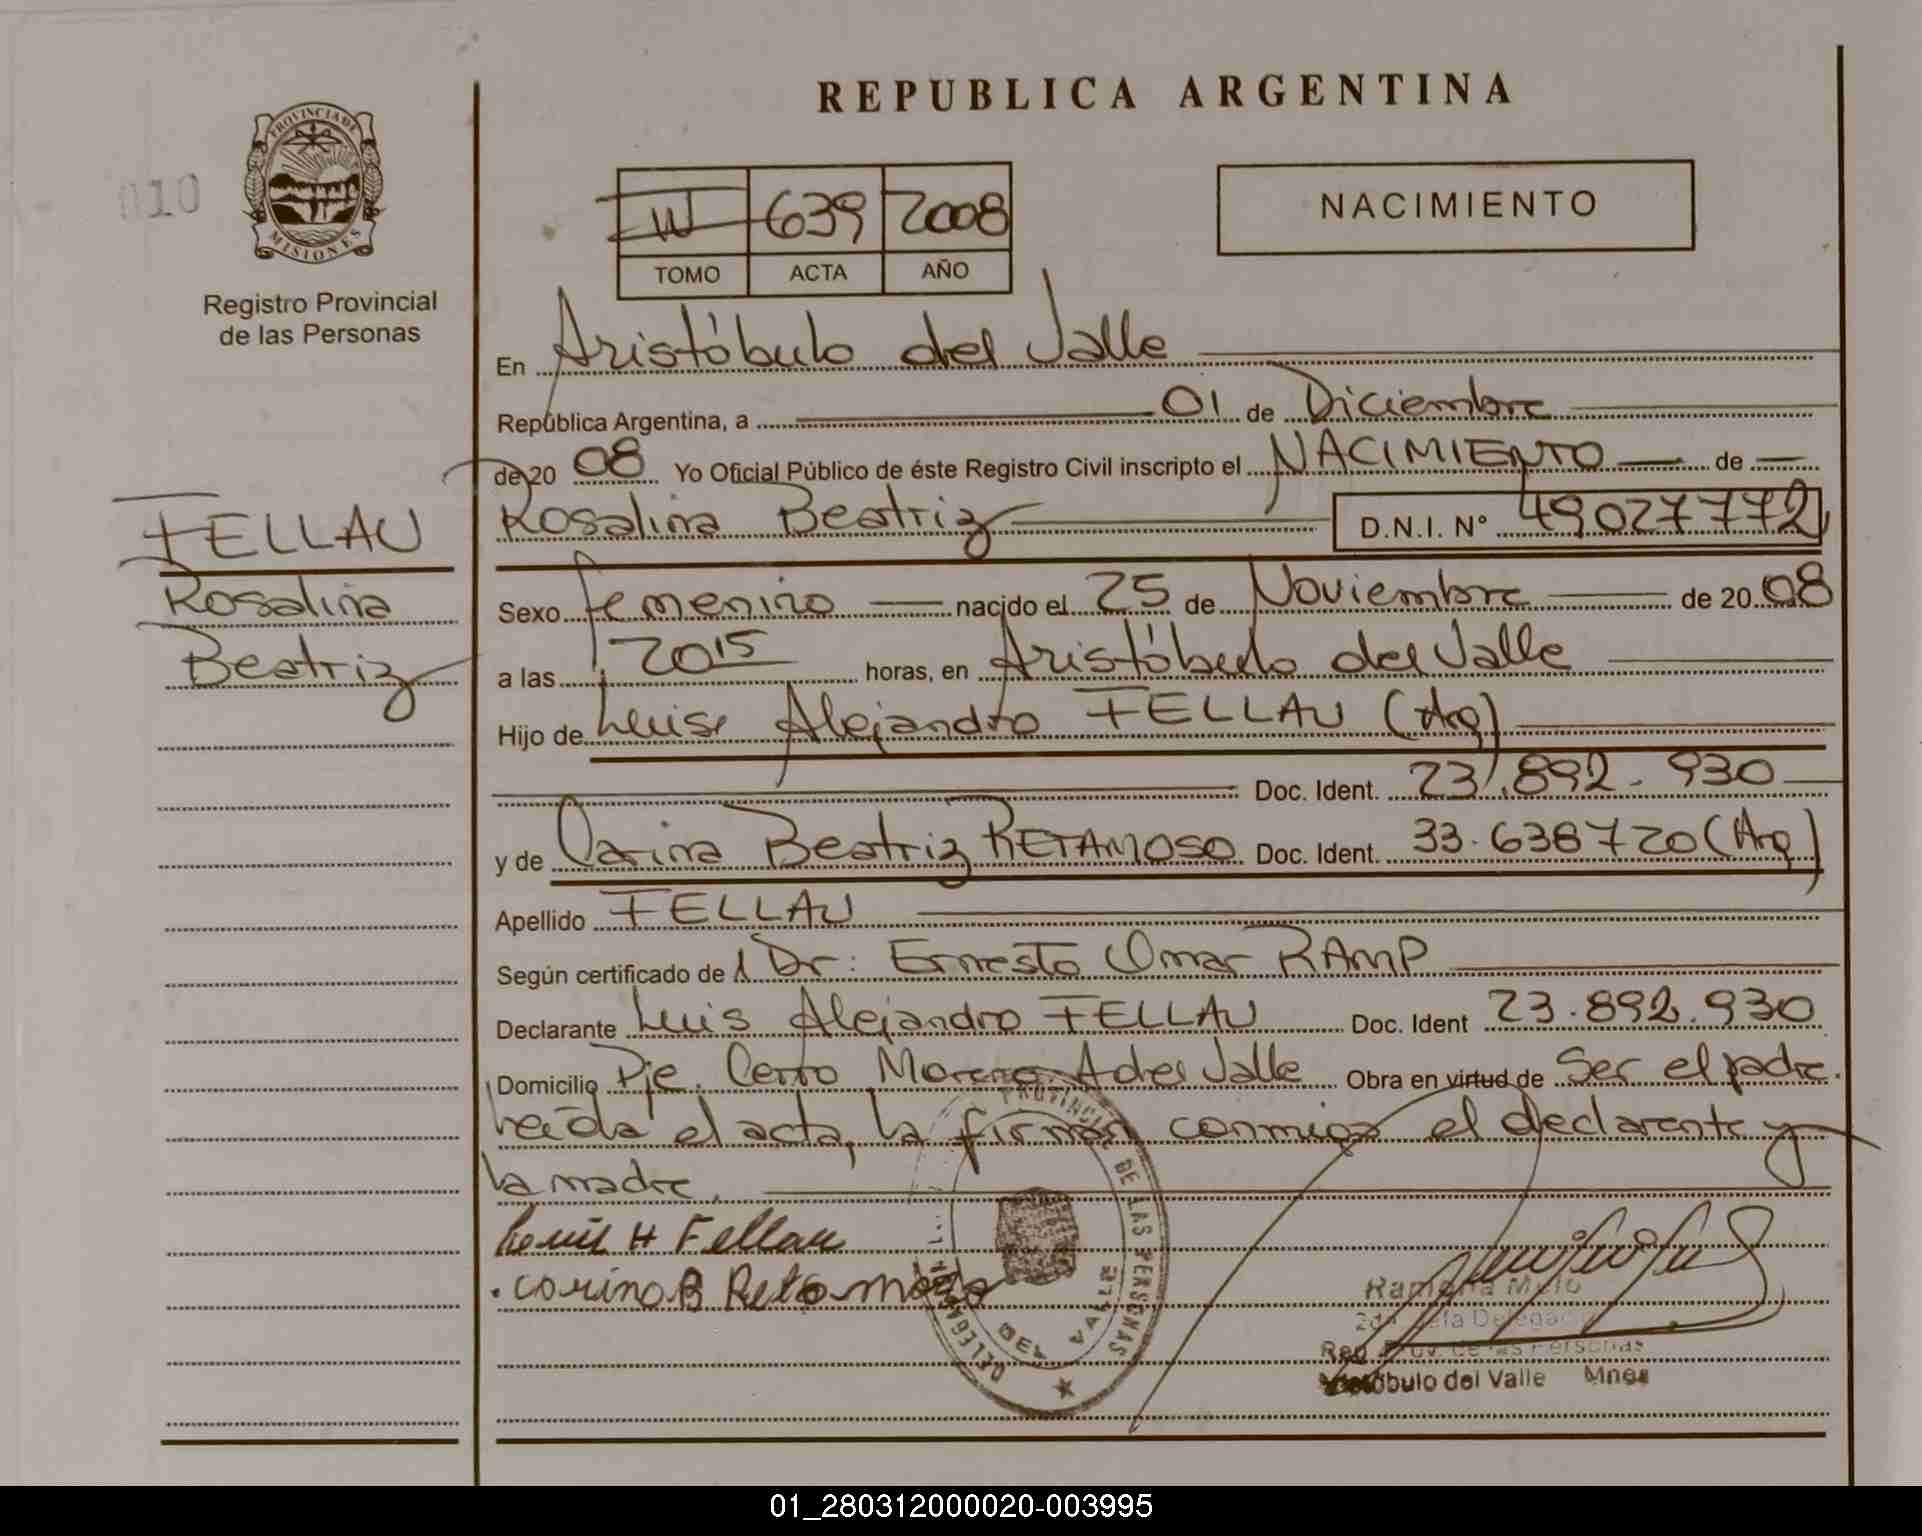 REPUBLICA ARGENTINA
PROVINCIA DE
MISIONES
010
Registro Provincial
de las Personas
639 2008
TOMO ACTA AÑO
NACIMIENTO
En Aristóbulo del Valle
República Argentina, a 01 de Diciembre
de 20 08 Yo Oficial Público de éste Registro Civil inscripto el NACIMIENTO de
Rosalina Beatriz D.N.I. N° 49027772
FELLAU
Rosalina
Beatriz
Sexo femenino nacido el 25 de Noviembre de 20 08
a las 20 15 horas, en Aristóbulo del Valle
Hijo de Luis Alejandro FELLAU (Arg)
Doc. Ident. 23.892.930
y de Carina Beatriz RETAMOSO Doc. Ident. 33.638720 (Arg)
Apellido FELLAU
Según certificado de Dr: Ernesto Omar RAMP
Declarante Luis Alejandro FELLAU Doc. Ident 23.892.930
Domicilio Pje. Cerro Moreno A del Valle Obra en virtud de Ser el padre.
Leída el acta, la firman conmigo el declarante y
la madre.
Fellau
corina B Retamozo
PROVINCIAL DE LAS PERSONAS
DELEGACION
DEL VALLE
Ramona Melo
Reg. Prov. de las Personas
Aristóbulo del Valle Mnes
01_280312000020-003995